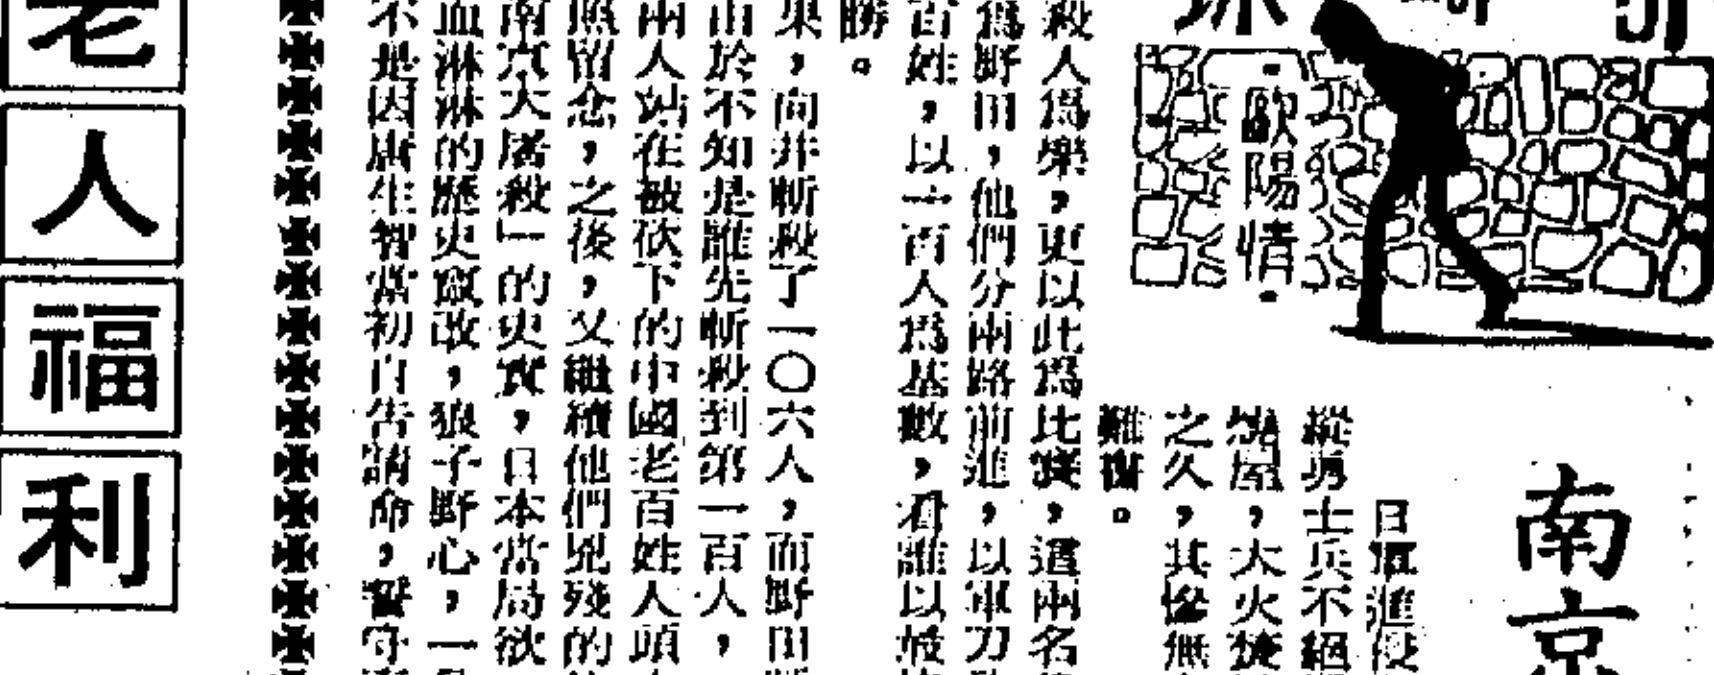 南京
•歐陽情•
日軍進侵
縱勇士兵不絕
燒屋,大火焚
之久,其慘無
難書。
殺人爲樂,更以此爲比賽,這兩名
爲野田,他們分兩路前進,以軍刀
百姓,以一百人爲基數,看誰以最
勝。
果,向井斬殺了一〇六人,而野田
由於不知是誰先斬殺到第一百人,
兩人站在被砍下的中國老百姓人頭
照留念,之後,又繼續他們兇殘的
南京大屠殺」的史實,日本當局欲
血淋淋的歷史竄改,狼子野心,一
不是因唐生智當初自告請命,誓守
老人福利